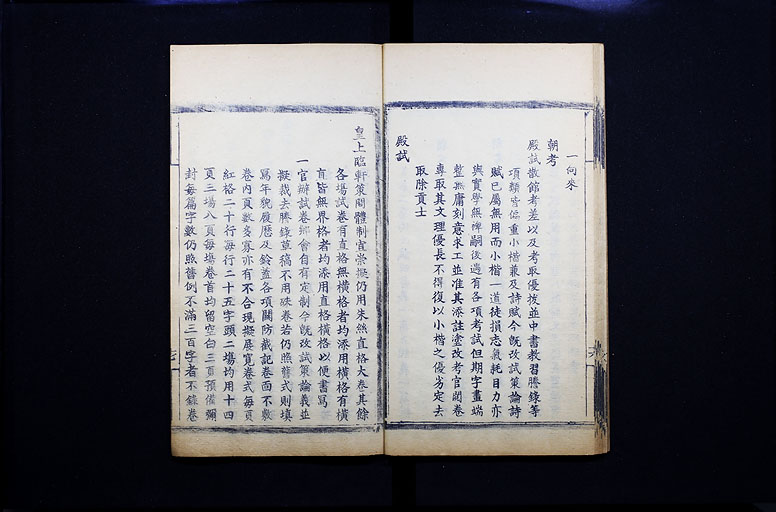 一向來
朝考
殿試散館考差以及考取優拔並中書教習謄錄等
項類皆偏重小楷兼及詩賦今既改試策論詩
賦已屬無用而小楷一道徒損志氣耗目力亦
與實學無裨嗣後遇有各項考試但期字畫端
整無庸刻意求工並准其添註塗改考官閱卷
專取其文理優長不得復以小楷之優劣定去
取除貢士
殿試
皇上臨軒策問體制宜崇擬仍用朱絲直格大卷其餘
各場試卷有直格無橫格者均添用橫格有橫
直皆無界格者均添用直格橫格以便書寫
一官辦試卷鄉會自有定制今既改試策論義並
擬裁去謄錄草稿不用硃卷若仍照舊式則填
寫年貌履歷及鈐蓋各項關防戳記卷面不敷
卷內頁數多寡亦有不合現擬展寬卷式每頁
紅格二十行每行二十五字頭二場均用十四
頁三場八頁每場卷首均留空白三頁預備彌
封每篇字數仍照舊例不滿三百字者不錄卷